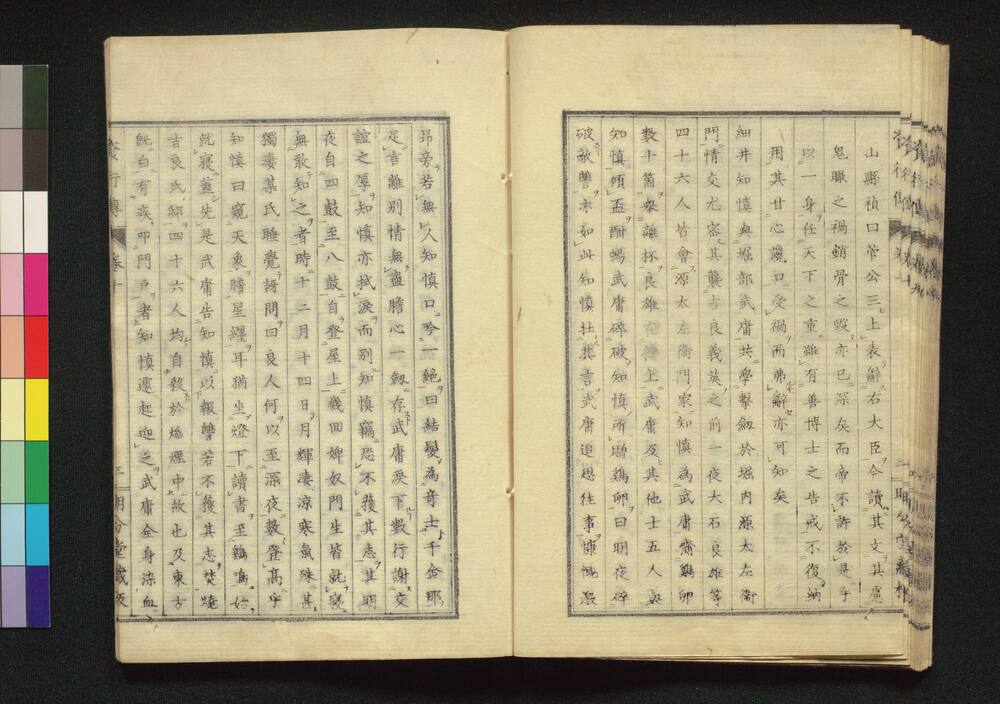 山縣禎曰菅公三上表辭右大臣今讀其文其慮
鬼瞰之禍銷骨之毀亦已深矣而帝不許於是乎
以一身任天下之重雖有善博士之告戒不復納
用其甘心讒口受禍而弗辭亦可知矣
細井知慎與堀部武庸共學擊劔於堀内源太左衞
門情交尤密其襲吉良義英之前一夜大石良雄等
四十六人皆會源太左衞門家知慎為武庸齎鷄卵
數十箇舉離杯良雄在樓上武庸及其他士五人與
知慎傾盃酣暢武庸碎破知慎所贈鷄卵曰明夜碎
破敵讐亦如此知慎壯其言武庸追思往事慷慨激
昂旁若無人知慎口吟一絶曰結髮為奇士千金那
足言離別情無盡膽心一劔存武庸淚下數行謝交
誼之厚知慎亦拭淚而別知慎竊恐不獲其志其明
夜自四鼓至八鼓自登屋上幾回婢奴門生皆就寢
無敢知之者時十二月十四日月輝凄涼寒氣殊甚
獨妻某氏睡覺訝問曰良人何以至深夜數登高乎
知慎曰窺天象瞻星纏耳猶坐燈下讀書至鷄鳴始
就寢蓋先是武庸告知慎以報讐若不獲其志焚燒
吉良氏邸四十六人均自殺於㷔煙中故也及東方
既白有疾叩門戸者知慎遽起迎之武庸全身染血